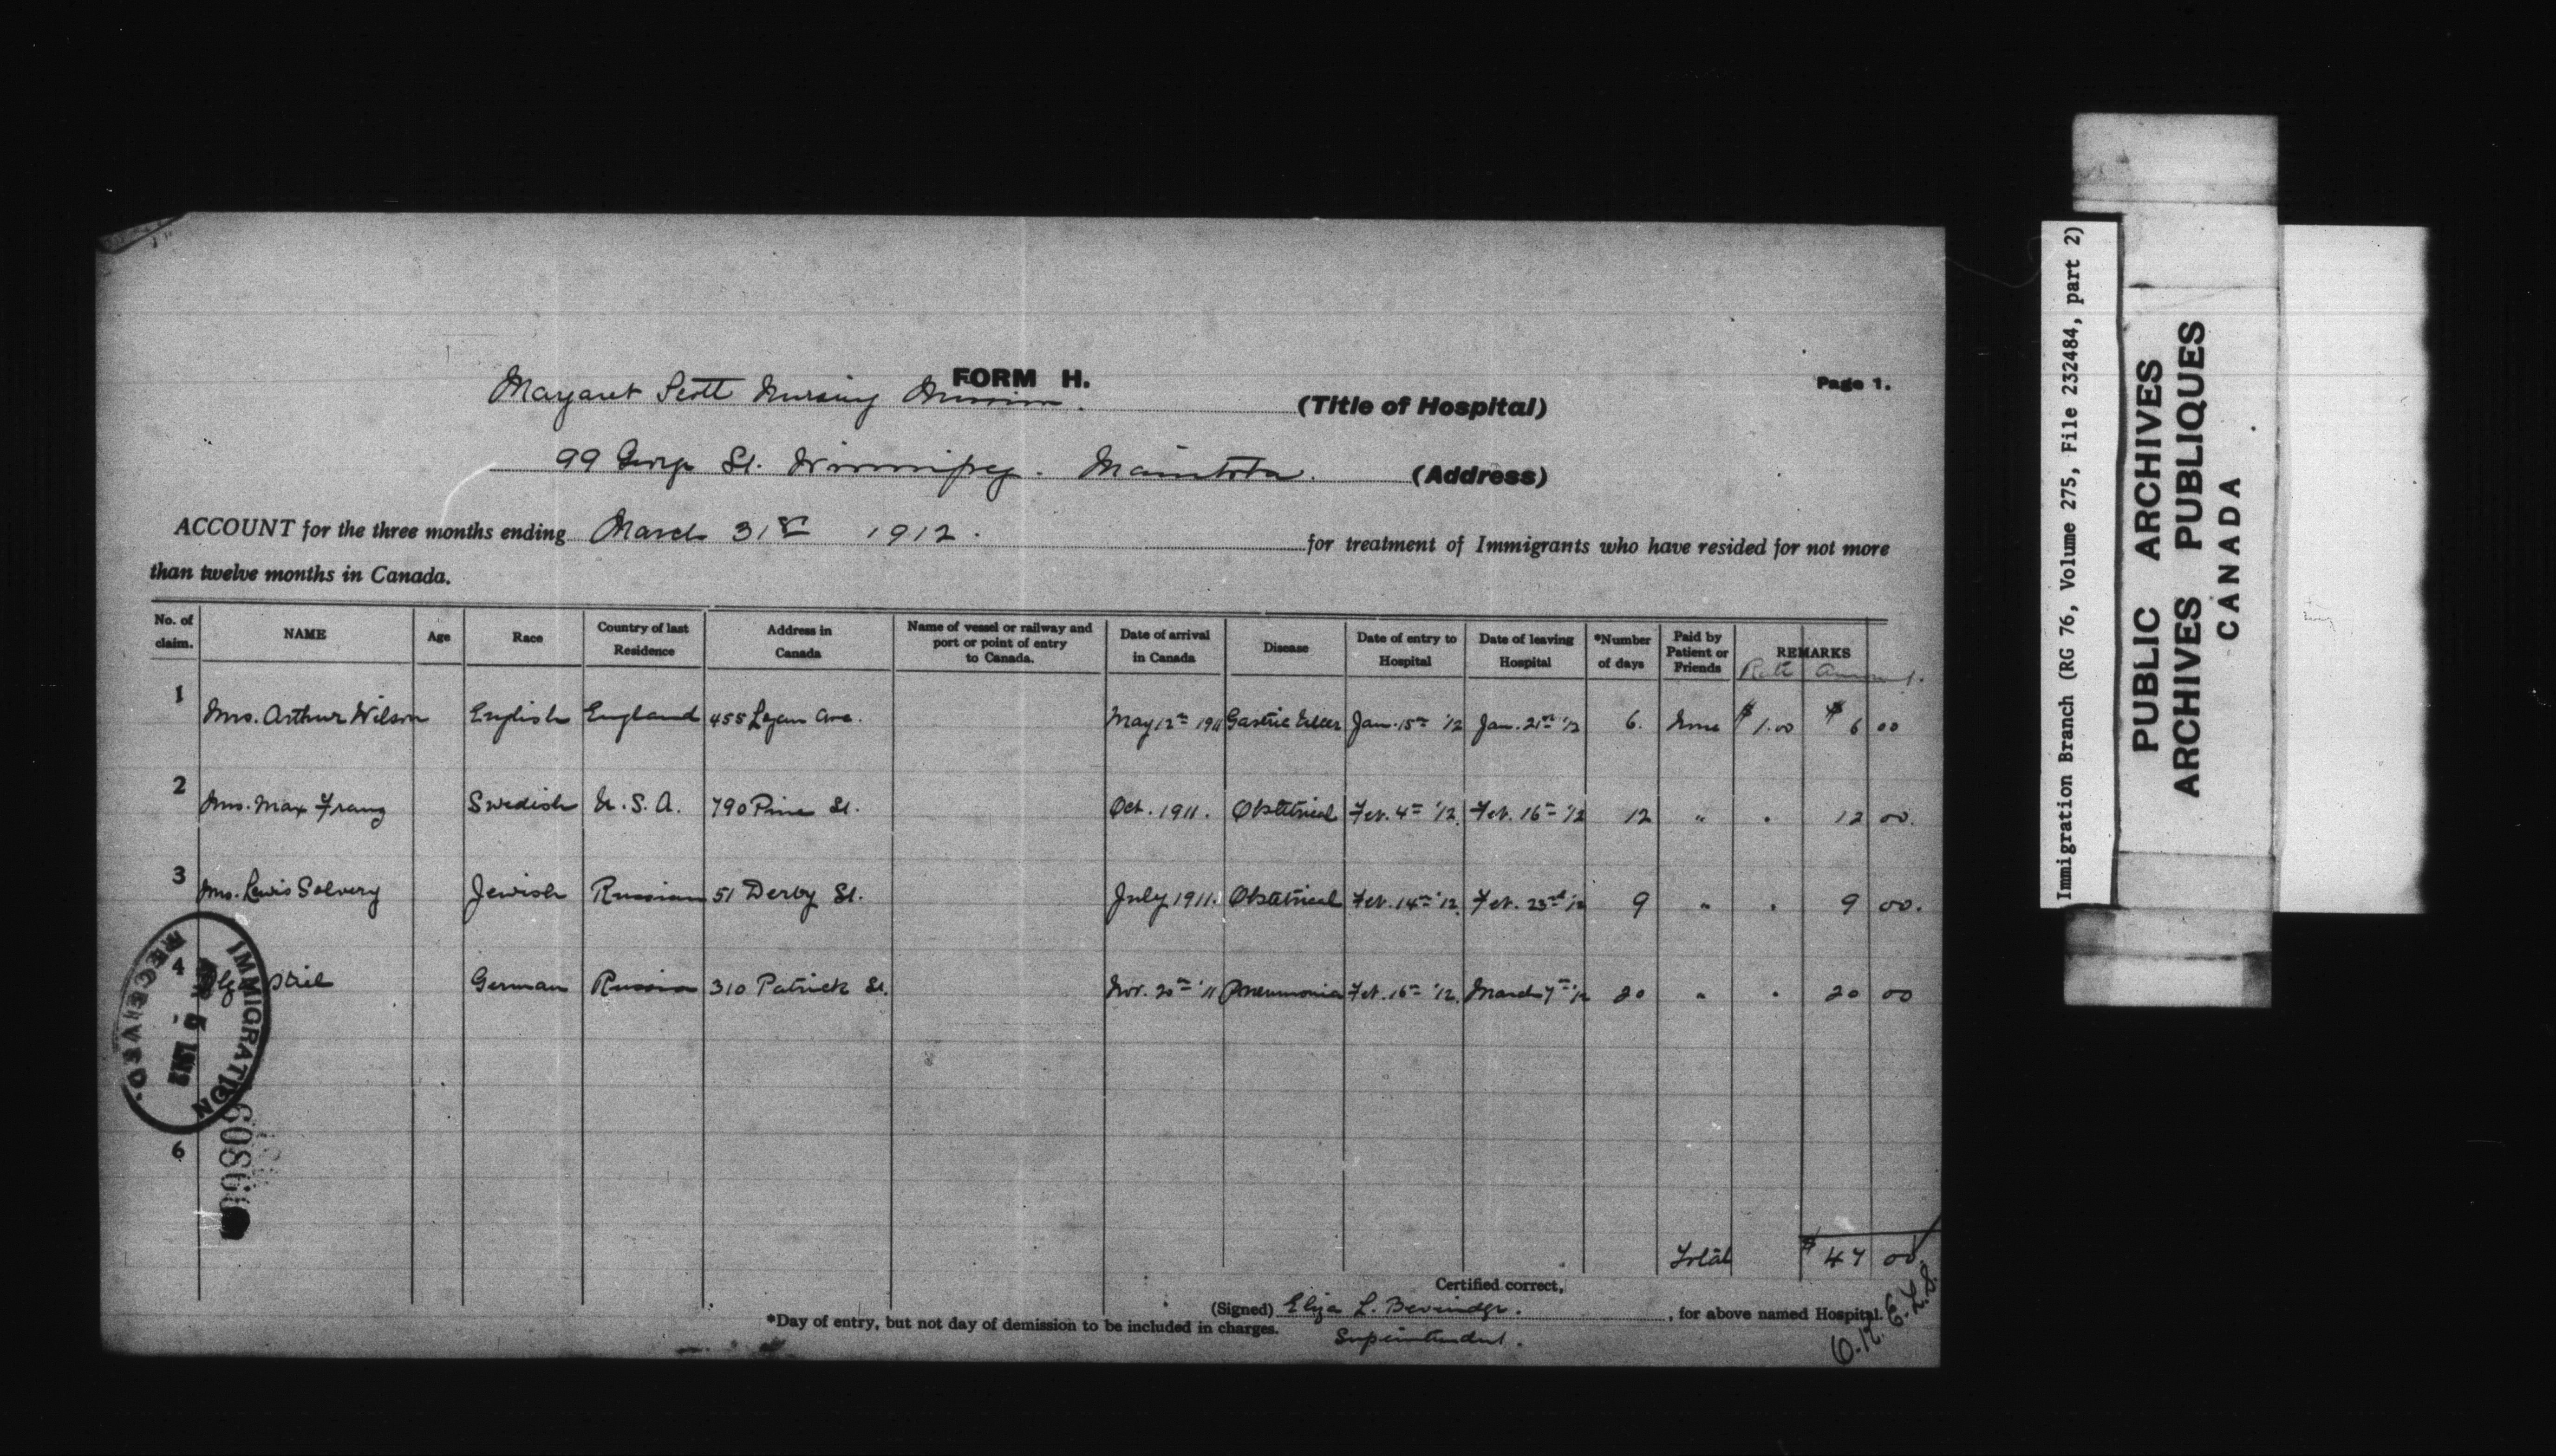 FORM H.
Page 1.
Margaret Scott Nursing Mission. (Title of Hospital)
99 George St. Winnipeg. Manitoba. (Address)
ACCOUNT for the three months ending March 31st 1912. for treatment of Immigrants who have resided for not more
than twelve months in Canada.
No. of claim. NAME Age Race Country of last Residence Address in Canada Name of vessel or railway and port or point of entry to Canada. Date of arrival in Canada Disease Date of entry to Hospital Date of leaving Hospital *Number of days Paid by Patient or Friends REMARKS Rate Amount.
1 Mrs. Arthur Wilson English England 455 Logan Ave. May 12th 1911 Gastric Ulcer Jan. 15th '12 Jan. 21st '12 6. None $1.00 $6 00
2 Mrs. Max Franz Swedish U.S.A. 790 Pine St. Oct. 1911. Obstetrical Feb. 4th '12. Feb. 16th '12 12 " " 12 00.
3 Mrs. Lewis Solvery Jewish Russian 51 Derby St. July 1911. Obstetrical Feb. 14th '12. Feb. 23rd '12 9 " " 9 00.
4 German Russia 310 Patrick St. Nov. 20th '11 Pneumonia Feb. 16th '12. March 7th '12 20 " " 20 00
IMMIGRATION
RECEIVED.
5 1912
6
Total $47 00.
Certified correct,
(Signed) Eliza L. Beveridge. , for above named Hospital.
*Day of entry, but not day of demission to be included in charges.
Superintendent.
O.K. E.L.S.
Immigration Branch (RG 76, Volume 275, File 232484, part 2)
PUBLIC ARCHIVES
ARCHIVES PUBLIQUES
CANADA